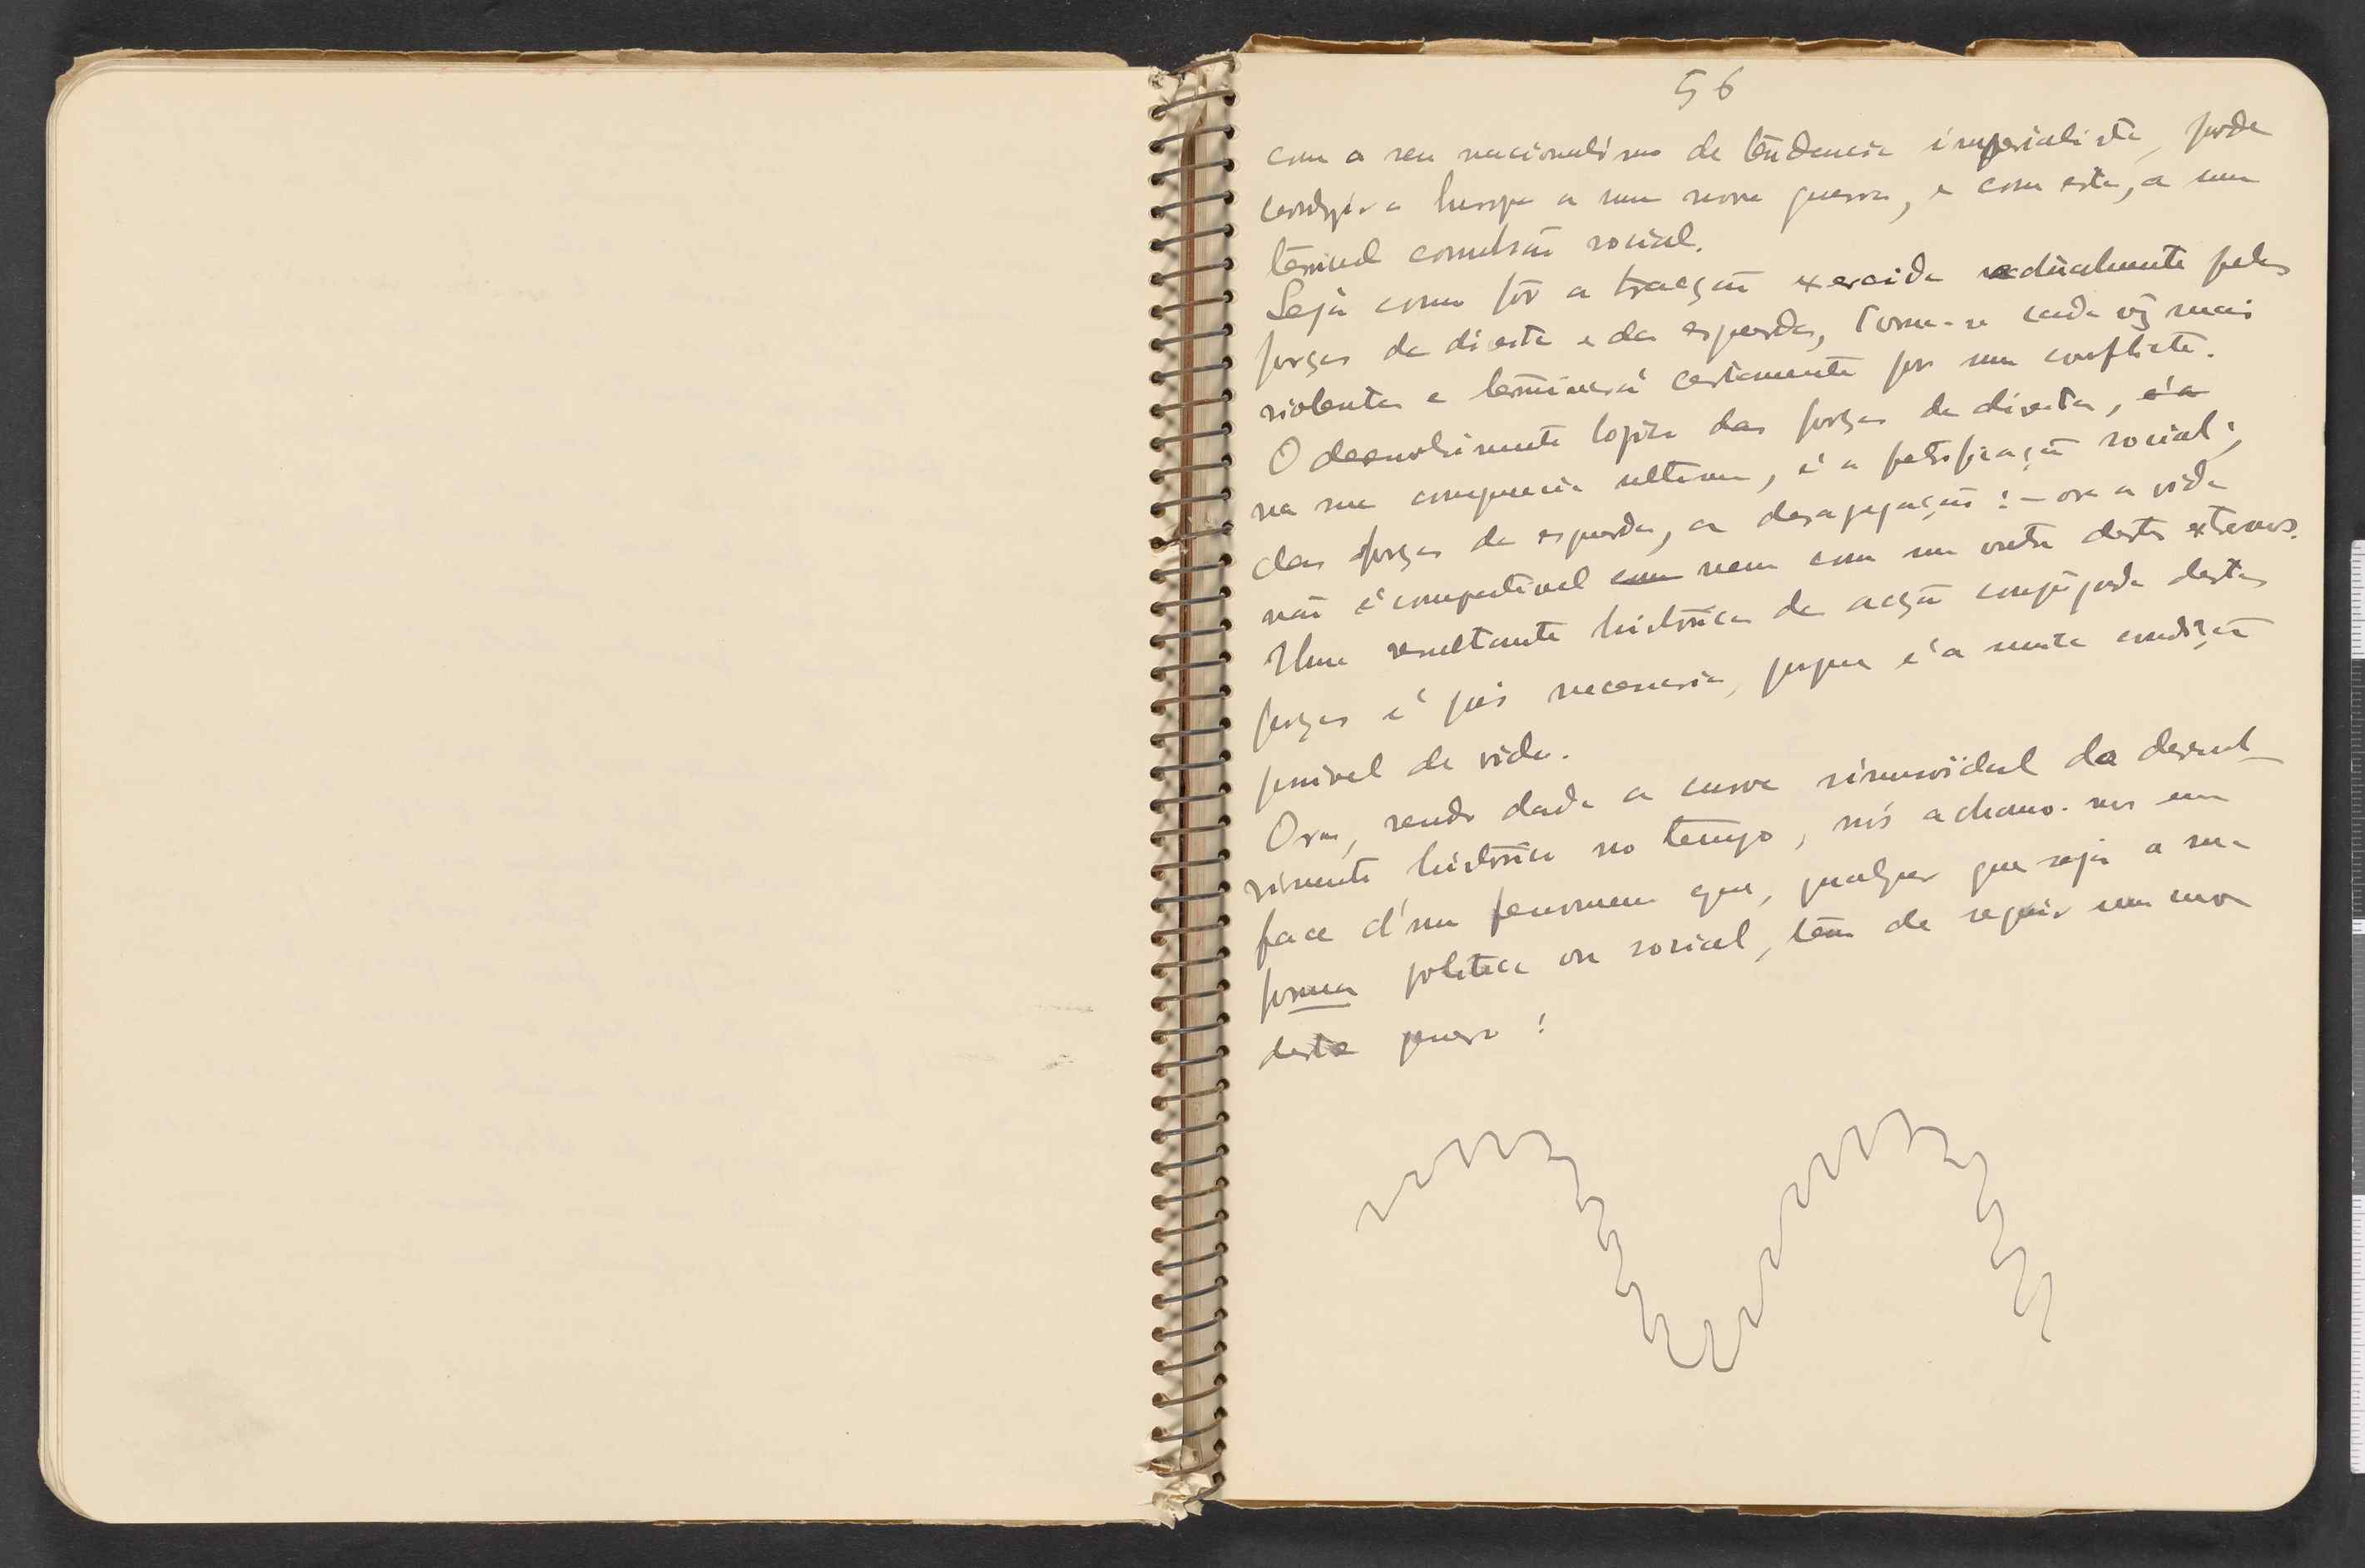 56
com o seu nacionalismo de tendencia imperialista, pode
conduzir a Europa a uma nova guerra, e com esta, a uma
terrivel convulsão social.
Seja como fôr a tracção exercida actualmente pelas
forças da direita e da esquerda, torna-se cada vez mais
violenta e terminará certamente por um conflicto.
O desenvolvimento logico das forças da direita, é a
na sua consequencia ultima, é a petrificação social;
das forças da esquerda, a desagregação: – ora a vida
não é compativel com nem com um outro destes extremos.
Uma resultante historica da acção conjugada destas
forças é pois necessaria, porque é a unica condição
possivel de vida.
Ora, sendo dada a curva sinusoidal do desenvol-
vimento histórico no tempo, nós achamo-nos em
face d'um fenomeno que, qualquer que seja a sua
forma politica ou social, tem de seguir uma curva
deste genero: